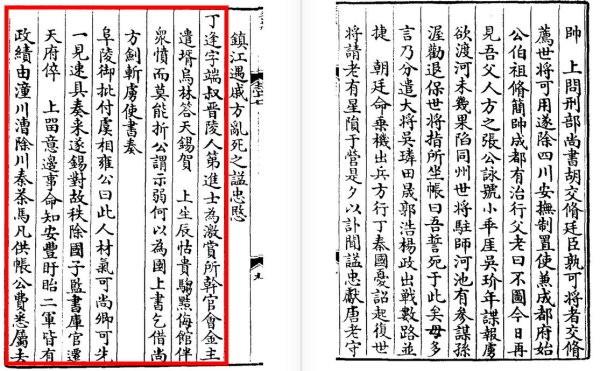 帥 上問刑部尚書胡交脩廷臣孰可將者交脩
薦世將可用遂除四川安撫制置使兼成都府始
公伯祖脩簡帥成都有治行父老曰不圖今日再
見吾父人方之張公詠號小乖崖吳玠年諜報虜
欲渡河未幾果陷同州世將駐師河池有參謀孫
渥勸退保世將指所坐帳曰吾誓死于此矣毋多
言乃分遣大將吳璘田晟郭浩楊政出戰數路並
捷 朝廷命乗機出兵方行丁泰國憂詔起復世
將請老有星隕于營是夕以訃聞謚忠獻唐老守
鎮江遇戚方亂死之謚忠愍
丁逢字端叔晉陵人第進士為激賞所幹官會金主
遣壻烏林答天錫賀 上生辰怙貴驕黠侮館伴
眾憤而莫能折公謂示弱何以為國上書乞借尚
方劍斬虜使書奏
阜陵御批付虞相雍公曰此人材氣可尚卿可先
一見速具奏來遂錫對故秩除國子監書庫官遷
天府倅 上留意邊事命知安豐盱眙二軍皆有
政績由潼川漕除川秦茶馬凡供帳公費悉屬去